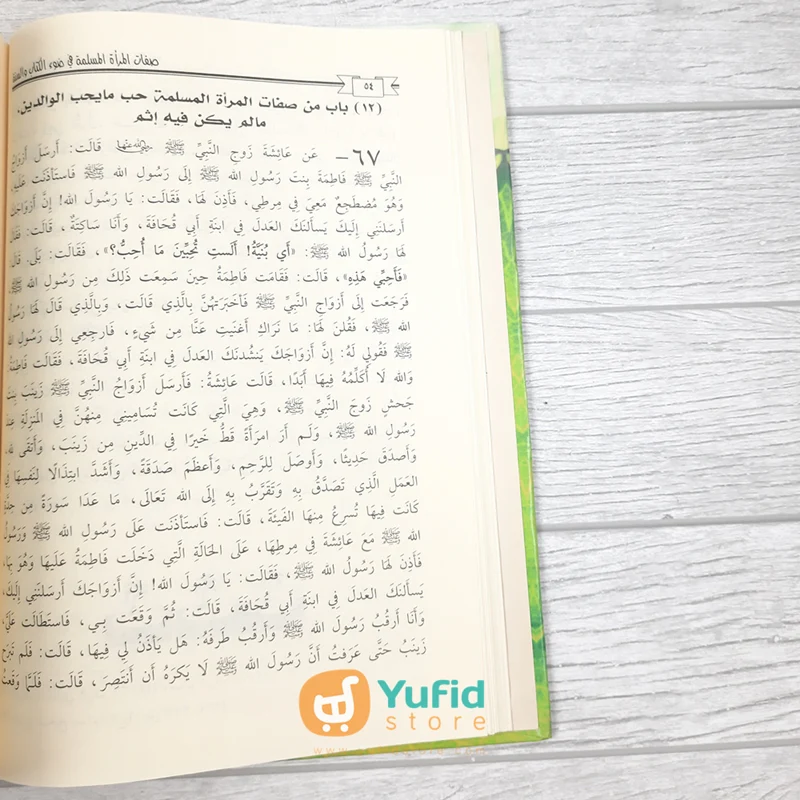 صفات المرأة المسلمة في ضوء الكتاب والسنة
٥٤
(١٢) باب من صفات المرأة المسلمة حب مايحب الوالدين،
مالم يكن فيه إثم
٦٧- عَن عَائِشَةَ زَوجِ النَّبِيِّ ﷺ رضي الله عنها قَالَت: أَرسَلَ أَزوَاجُ
النَّبِيِّ ﷺ فَاطِمَةَ بِنتَ رَسُولِ الله ﷺ إِلَى رَسُولِ الله ﷺ فَاستَأذَنَت عَلَيهِ
وَهُوَ مُضطَجِعٌ مَعِي فِي مِرطِي، فَأَذِنَ لَهَا، فَقَالَت: يَا رَسُولَ الله! إِنَّ أَزوَاجَكَ
أَرسَلنَنِي إِلَيكَ يَسأَلنَكَ العَدلَ فِي ابنَةِ أَبِي قُحَافَةَ، وَأَنَا سَاكِتَةٌ، قَالَت: فَقَالَ
لَهَا رَسُولُ الله ﷺ: «أَي بُنَيَّةُ! أَلَستِ تُحِبِّينَ مَا أُحِبُّ؟»، فَقَالَت: بَلَى. قَالَ:
«فَأَحِبِّي هَذِهِ»، قَالَت: فَقَامَت فَاطِمَةُ حِينَ سَمِعَت ذَلِكَ مِن رَسُولِ الله ﷺ
فَرَجَعَت إِلَى أَزوَاجِ النَّبِيِّ ﷺ فَأَخبَرَتهُنَّ بِالَّذِي قَالَت، وَبِالَّذِي قَالَ لَهَا رَسُولُ
الله ﷺ، فَقُلنَ لَهَا: مَا نَرَاكِ أَغنَيتِ عَنَّا مِن شَيءٍ، فَارجِعِي إِلَى رَسُولِ الله
ﷺ فَقُولِي لَهُ: إِنَّ أَزوَاجَكَ يَنشُدنَكَ العَدلَ فِي ابنَةِ أَبِي قُحَافَةَ، فَقَالَت فَاطِمَةُ:
وَالله لَا أُكَلِّمُهُ فِيهَا أَبَدًا، قَالَت عَائِشَةُ: فَأَرسَلَ أَزوَاجُ النَّبِيِّ ﷺ زَينَبَ بِنتَ
جَحشٍ زَوجَ النَّبِيِّ ﷺ، وَهِيَ الَّتِي كَانَت تُسَامِينِي مِنهُنَّ فِي المَنزِلَةِ عِندَ
رَسُولِ الله ﷺ، وَلَم أَرَ امرَأَةً قَطُّ خَيرًا فِي الدِّينِ مِن زَينَبَ، وَأَتقَى لله،
وَأَصدَقَ حَدِيثًا، وَأَوصَلَ لِلرَّحِمِ، وَأَعظَمَ صَدَقَةً، وَأَشَدَّ ابتِذَالًا لِنَفسِهَا فِي
العَمَلِ الَّذِي تَصَدَّقُ بِهِ وَتَقَرَّبُ بِهِ إِلَى الله تَعَالَى، مَا عَدَا سَورَةً مِن حِدَّةٍ
كَانَت فِيهَا تُسرِعُ مِنهَا الفَيئَةَ، قَالَت: فَاستَأذَنَت عَلَى رَسُولِ الله ﷺ وَرَسُولُ
الله ﷺ مَعَ عَائِشَةَ فِي مِرطِهَا، عَلَى الحَالَةِ الَّتِي دَخَلَت فَاطِمَةُ عَلَيهَا وَهُوَ بِهَا،
فَأَذِنَ لَهَا رَسُولُ الله ﷺ، فَقَالَت: يَا رَسُولَ الله! إِنَّ أَزوَاجَكَ أَرسَلنَنِي إِلَيكَ
يَسأَلنَكَ العَدلَ فِي ابنَةِ أَبِي قُحَافَةَ، قَالَت: ثُمَّ وَقَعَت بِي، فَاستَطَالَت عَلَيَّ،
وَأَنَا أَرقُبُ رَسُولَ الله ﷺ وَأَرقُبُ طَرفَهُ: هَل يَأذَنُ لِي فِيهَا، قَالَت: فَلَم تَبرَح
زَينَبُ حَتَّى عَرَفتُ أَنَّ رَسُولَ الله ﷺ لَا يَكرَهُ أَن أَنتَصِرَ، قَالَت: فَلَمَّا وَقَعتُ
Yufid
store